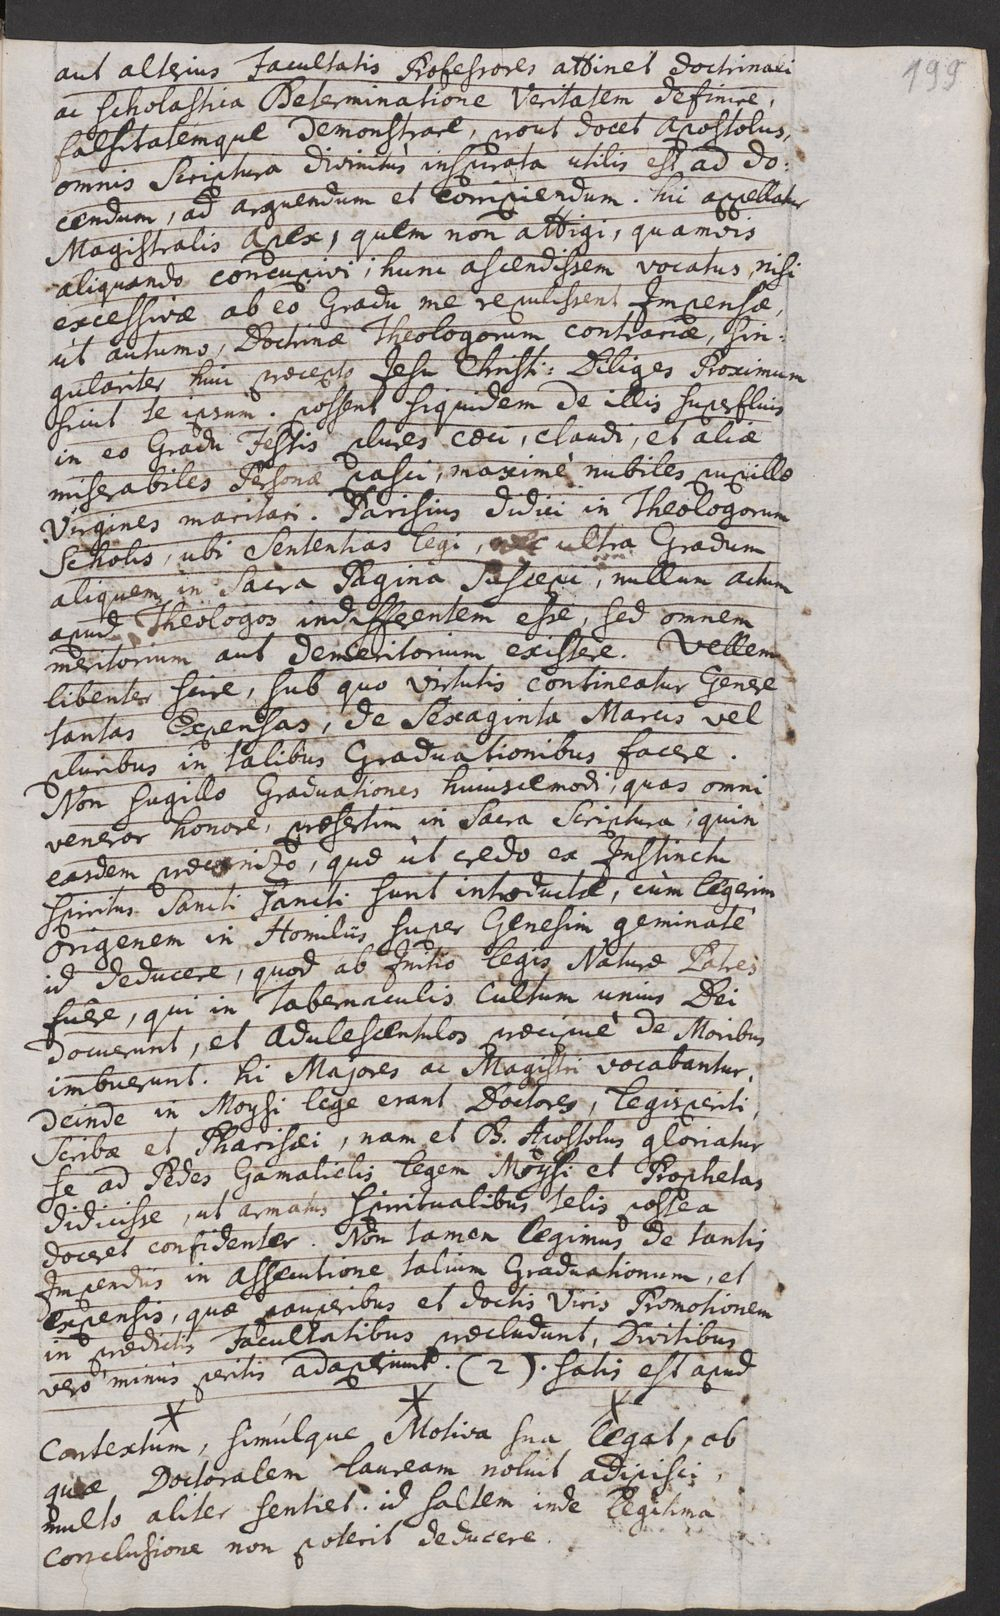 199
aut alterius Facultatis Professores attinet doctrinali
ac scholastica Determinatione Veritatem definire,
falsitatemque demonstrare, prout docet Apostolus,
omnis Scriptura divinitus inspirata utilis est ad do:
cendum, ad arguendum et corripiendum. hic appellatur
Magistralis apex, quem non attigi, quamvis
aliquando concupivi; hunc ascendissem vocatus, nisi
excessivæ ab eo Gradu me repulissent Impensæ,
ut autumo, Doctrinæ Theologorum contrariæ, sin:
gulariter huic præcepto Jesu Christi: Diliges Proximum
sicut te ipsum. possent siquidem de illis superfluis
in eo Gradu Festis plures cœci, claudi, et aliæ
miserabiles Personæ pasci, maximè nubiles pupillæ
Virgines maritari. Parisius didici in Theologorum
Scholis, ubi Sententias legi, nec ultra Gradum
aliquem in Sacra Pagina suscepi, nullum actum
apud Theologos indifferentem esse, sed omnem
meritorium aut demeritorium existere. Vellem
libenter scire, sub quo virtutis contineatur Genere
tantas Expensas, de Sexaginta Marcis vel
pluribus in talibus Graduationibus facere.
Non sugillo Graduationes huiuscemodi, quas omni
veneror honore, præsertim in Sacra Scriptura; quin
easdem præconizo, quæ ut credo ex Instinctu
Spiritus Sancti Sancti sunt introductæ, cùm legerim
Origenem in Homiliis super Genesim geminatè
id deducere, quod ab Initio legis Naturæ Patres
fuere, qui in tabernaculis Cultum unius Dei
docuerunt, et adulescentulos præcipuè de Moribus
imbuerunt. hi Majores ac Magistri vocabantur.
Deinde in Moysi lege erant Doctores, legisperiti,
Scribæ et Pharisæi, nam et B. Apostolus gloriatur
se ad Pedes Gamalielis legem Moysi et Prophetas
didicisse, ut armatus spiritualibus telis postea
doceret confidenter. Non tamen legimus de tantis
Impendiis in assecutione talium Graduationum, et
expensis, quæ pauperibus et doctis Viris Promotionem
in prædictis Facultatibus præcludunt, Divitibus
vero minus peritis adaperiunt. (2). Satis est apud
Contextum, simúlque Motiva sua legat, ob
quæ Doctoralem lauream noluit adipisci,
multo aliter sentiet. id saltem inde legitima
Conclusione non poterit deducere.